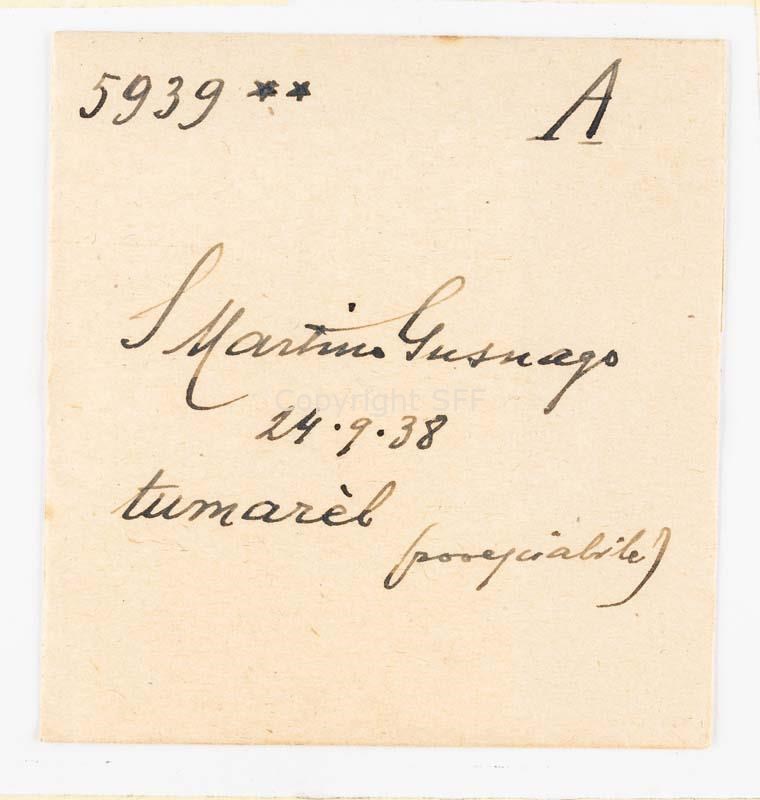 5939 ** A
S Martino Gusnago
Copyright SFF
24·9·38
tumarèl